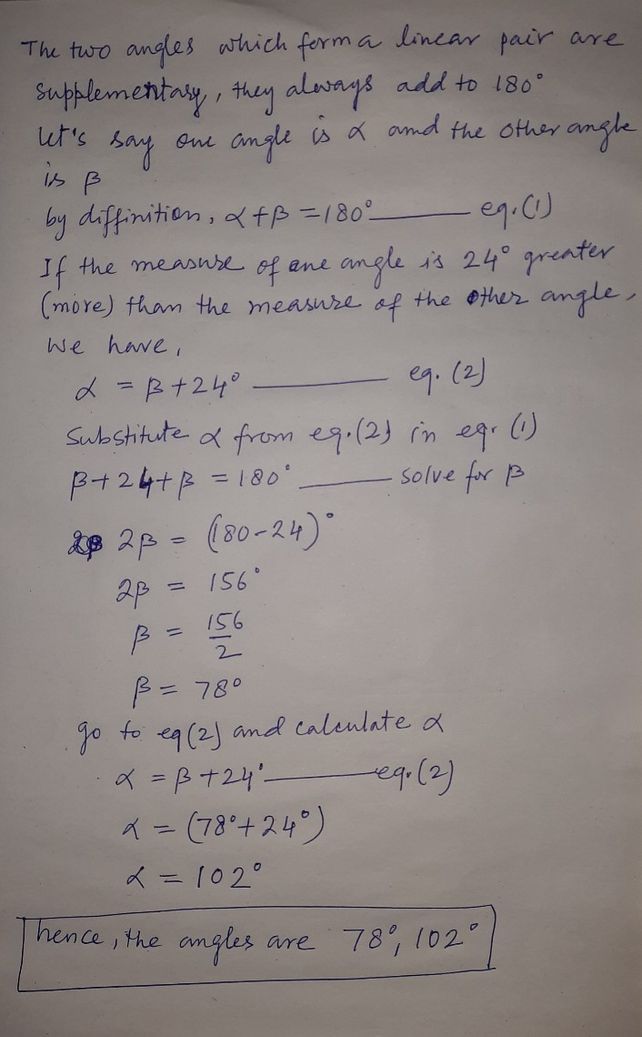 The two angles which form a linear pair are
supplementary, they always add to 180°
let's say one angle is α and the other angle
is β
by diffinition, α+β = 180° ——— eq.(1)
If the measure of one angle is 24° greater
(more) than the measure of the other angle,
we have,
α = β+24° ——— eq. (2)
Substitute α from eq.(2) in eq. (1)
β+24+β = 180° ——— solve for β
2β = (180-24)°
2β = 156°
β = 156/2
β = 78°
go to eq(2) and calculate α
α = β+24° ——— eq.(2)
α = (78°+24°)
α = 102°
hence, the angles are 78°, 102°